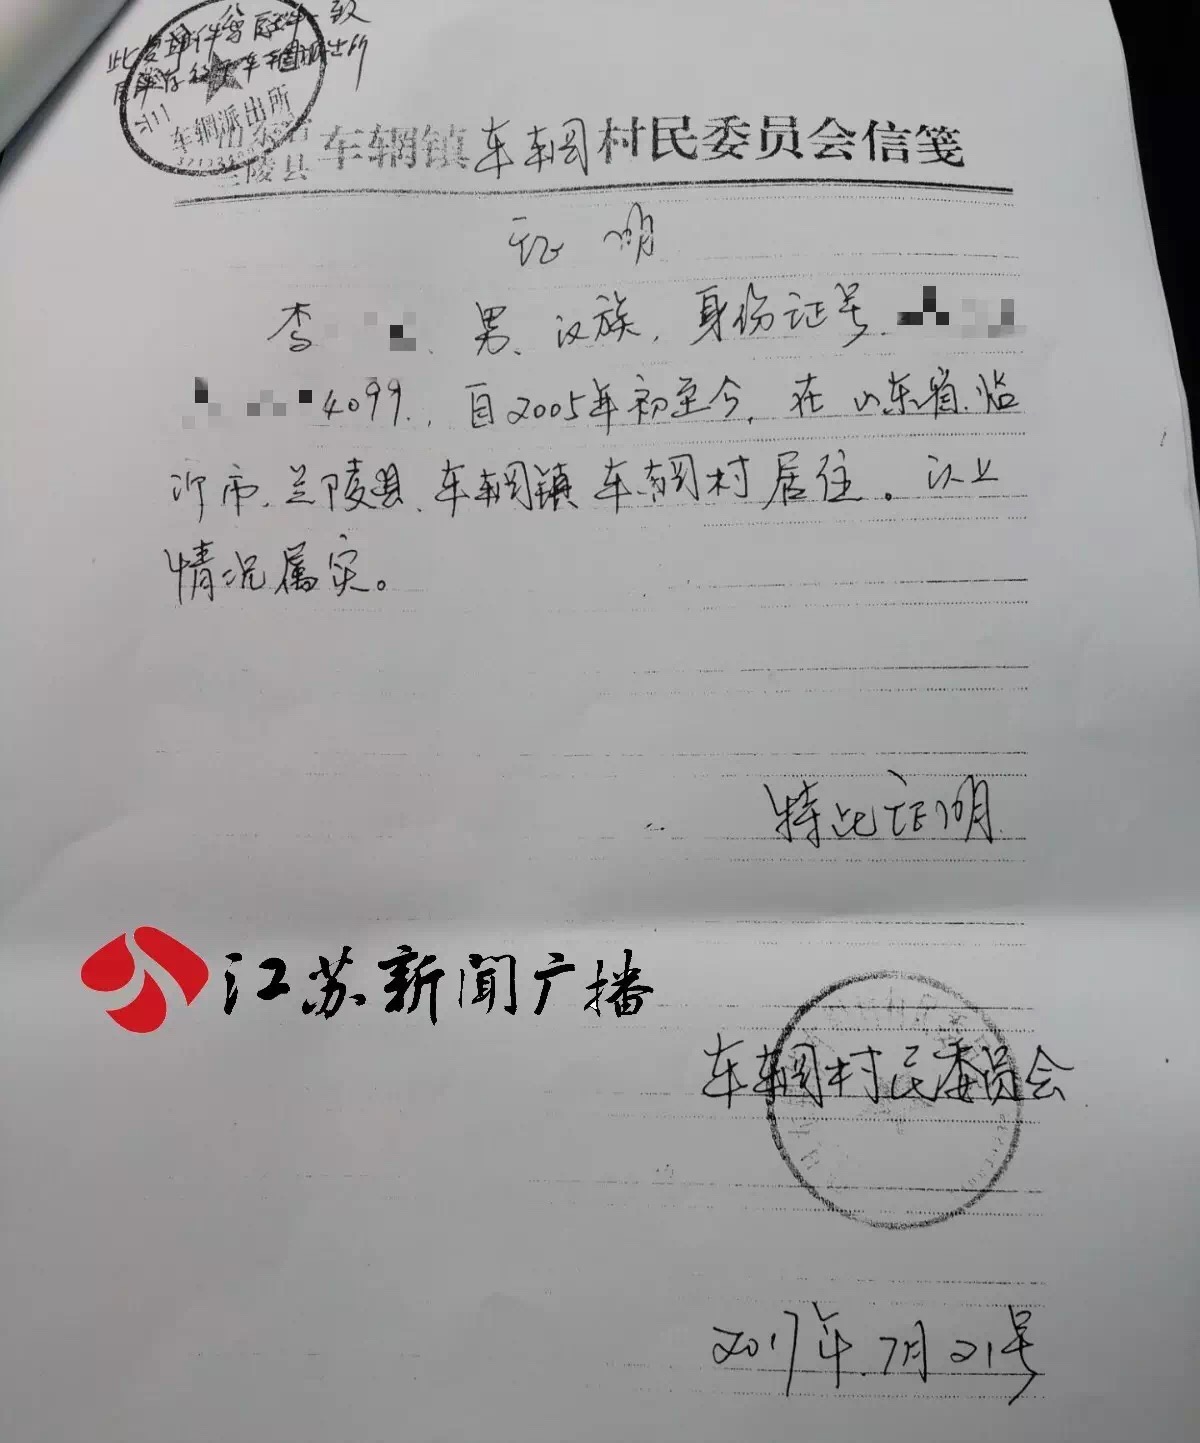 此复印件与原件一致
车辋派出所
山东省
兰陵县 车辋镇车辋村民委员会信笺
证明
李 、男、汉族，身份证号
4099，自2005年初至今，在山东省临
沂市、兰陵县、车辋镇车辋村居住。以上
情况属实。
特此证明
江苏新闻广播
车辋村民委员会
2017年7月21号